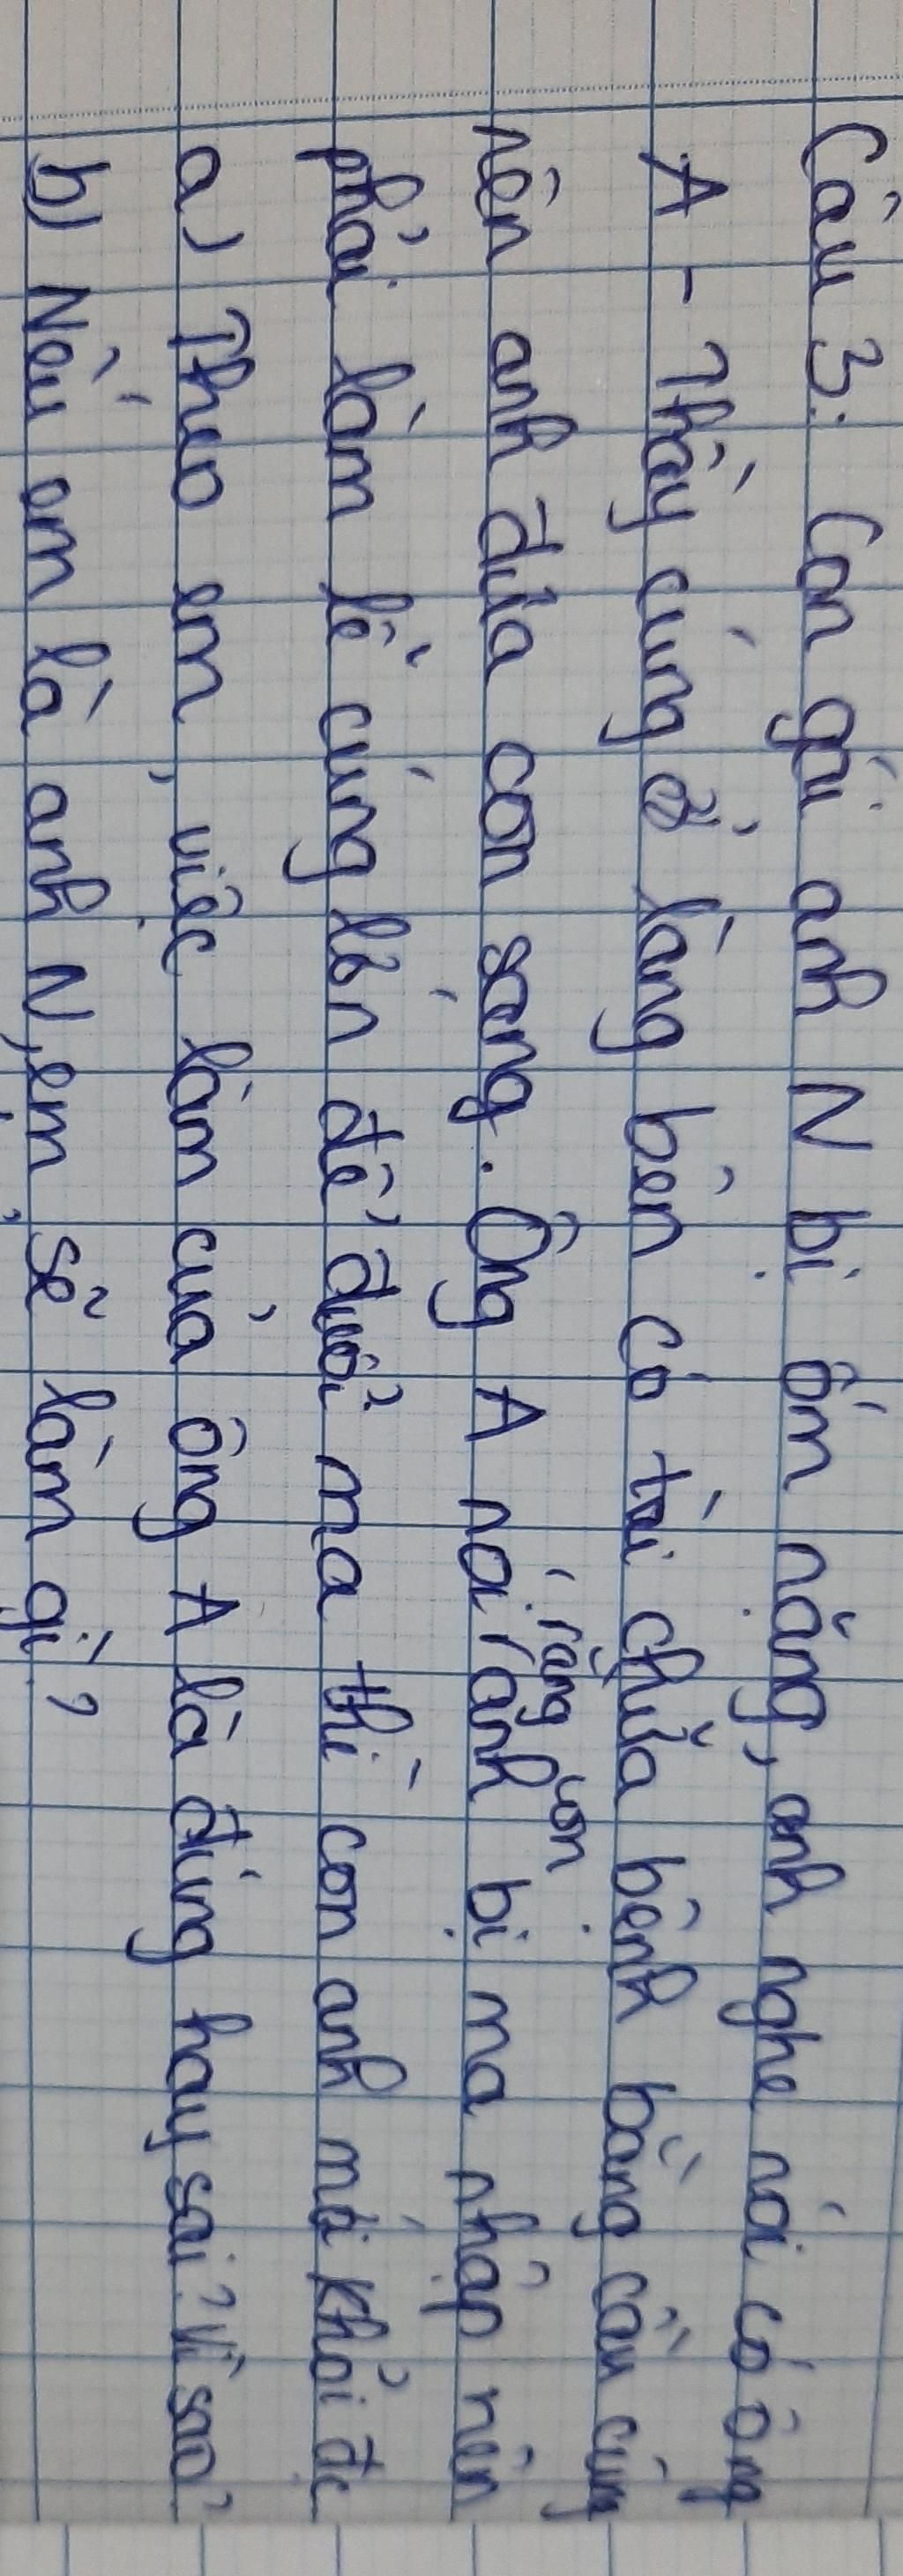 Câu 3: Con gái anh N bị ốm nặng, anh nghe nói có ông
A - Thầy cúng ở làng bên có tài chữa bệnh bằng cầu cúng
nên anh đưa con sang. Ông A nói rằng con anh bị ma nhập nên
phải làm lễ cúng lớn để đuổi ma thì con anh mới khỏi đc
a) Theo em, việc làm của ông A là đúng hay sai? Vì sao?
b) Nếu em là anh N, em sẽ làm gì?